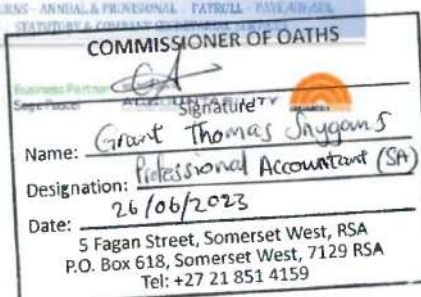 RNS - ANNUAL & PROVISIONAL - PAYROLL - PAYE, UIF, SDL
STATUTORY & COMPANY
COMMISSIONER OF OATHS
Business Partner
Sage Pastel
Signature
Name: Grant Thomas Snygans
Designation: Professional Accountant (SA)
Date: 26/06/2023
5 Fagan Street, Somerset West, RSA
P.O. Box 618, Somerset West, 7129 RSA
Tel: +27 21 851 4159